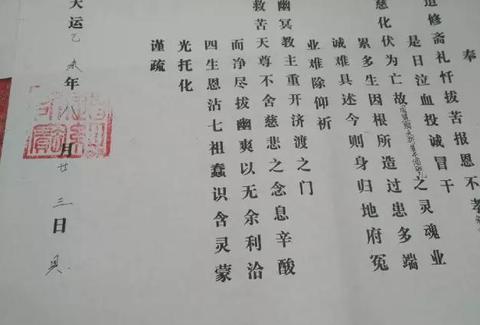 奉
道修斋礼忏拔苦报恩不孝
是日泣血投诚冒干
慈化伏为亡故之灵魂业
累多生因根所造过患多端
诚难具述今则身归地府冤
业难除仰祈
幽冥教主重开济渡之门
救苦天尊不舍慈悲之念息辛酸
而净尽拔幽爽以无余利洽
四生恩沾七祖蠢识含灵蒙
光托化
谨疏
天运乙未年八月廿三日具